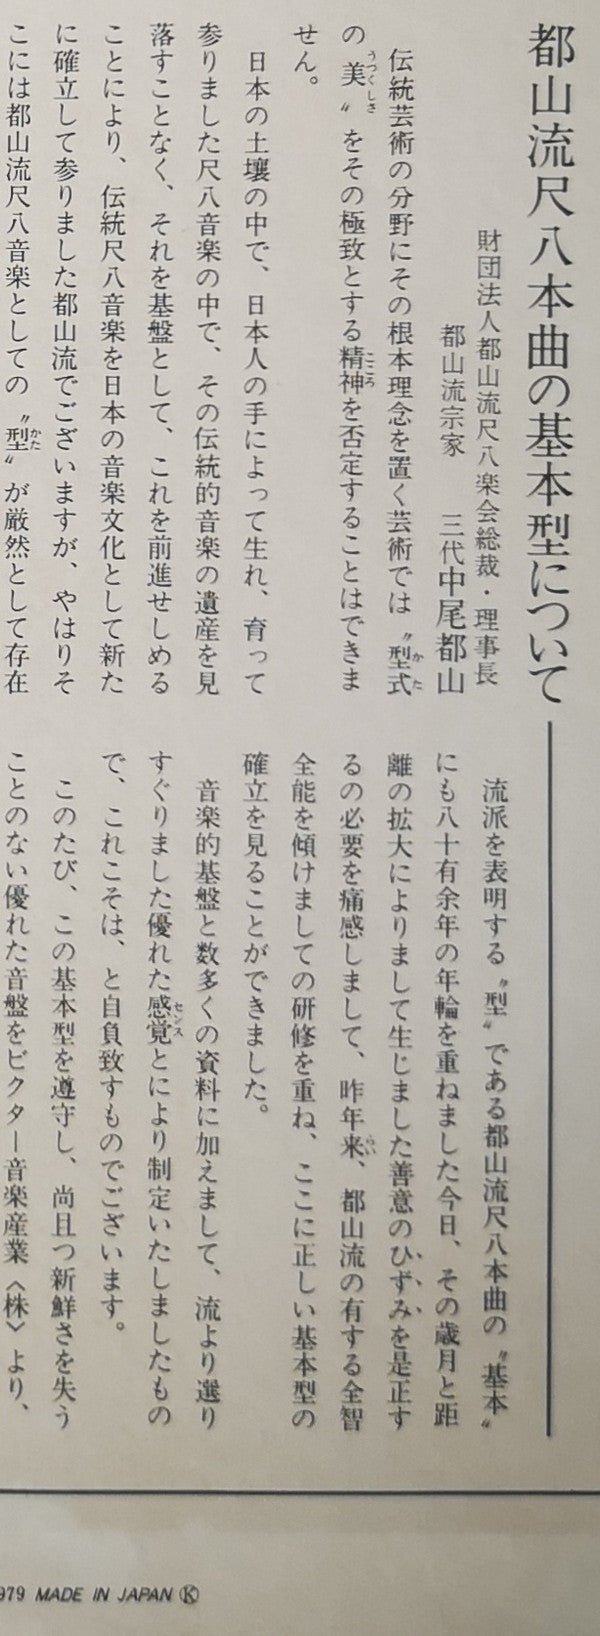 都山流尺八本曲の基本型について
財団法人都山流尺八楽会総裁・理事長
都山流宗家 三代中尾都山
伝統芸術の分野にその根本理念を置く芸術では〝型式〟
の〝美〟をその極致とする精神を否定することはできま
せん。
日本の土壌の中で、日本人の手によって生れ、育って
参りました尺八音楽の中で、その伝統的音楽の遺産を見
落すことなく、それを基盤として、これを前進せしめる
ことにより、伝統尺八音楽を日本の音楽文化として新た
に確立して参りました都山流でございますが、やはりそ
こには都山流尺八音楽としての〝型〟が厳然として存在
流派を表明する〝型〟である都山流尺八本曲の〝基本〟
にも八十有余年の年輪を重ねました今日、その歳月と距
離の拡大によりまして生じました善意のひずみを是正す
るの必要を痛感しまして、昨年来、都山流の有する全智
全能を傾けましての研修を重ね、ここに正しい基本型の
確立を見ることができました。
音楽的基盤と数多くの資料に加えまして、流より選り
すぐりました優れた感覚とにより制定いたしましたもの
で、これこそは、と自負致すものでございます。
このたび、この基本型を遵守し、尚且つ新鮮さを失う
ことのない優れた音盤をビクター音楽産業〈株〉より、
979 MADE IN JAPAN Ⓚ